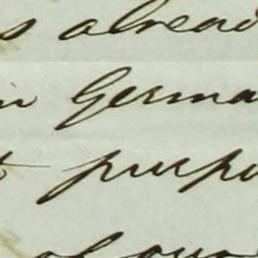 s alread
in Germa
t purpo
of our